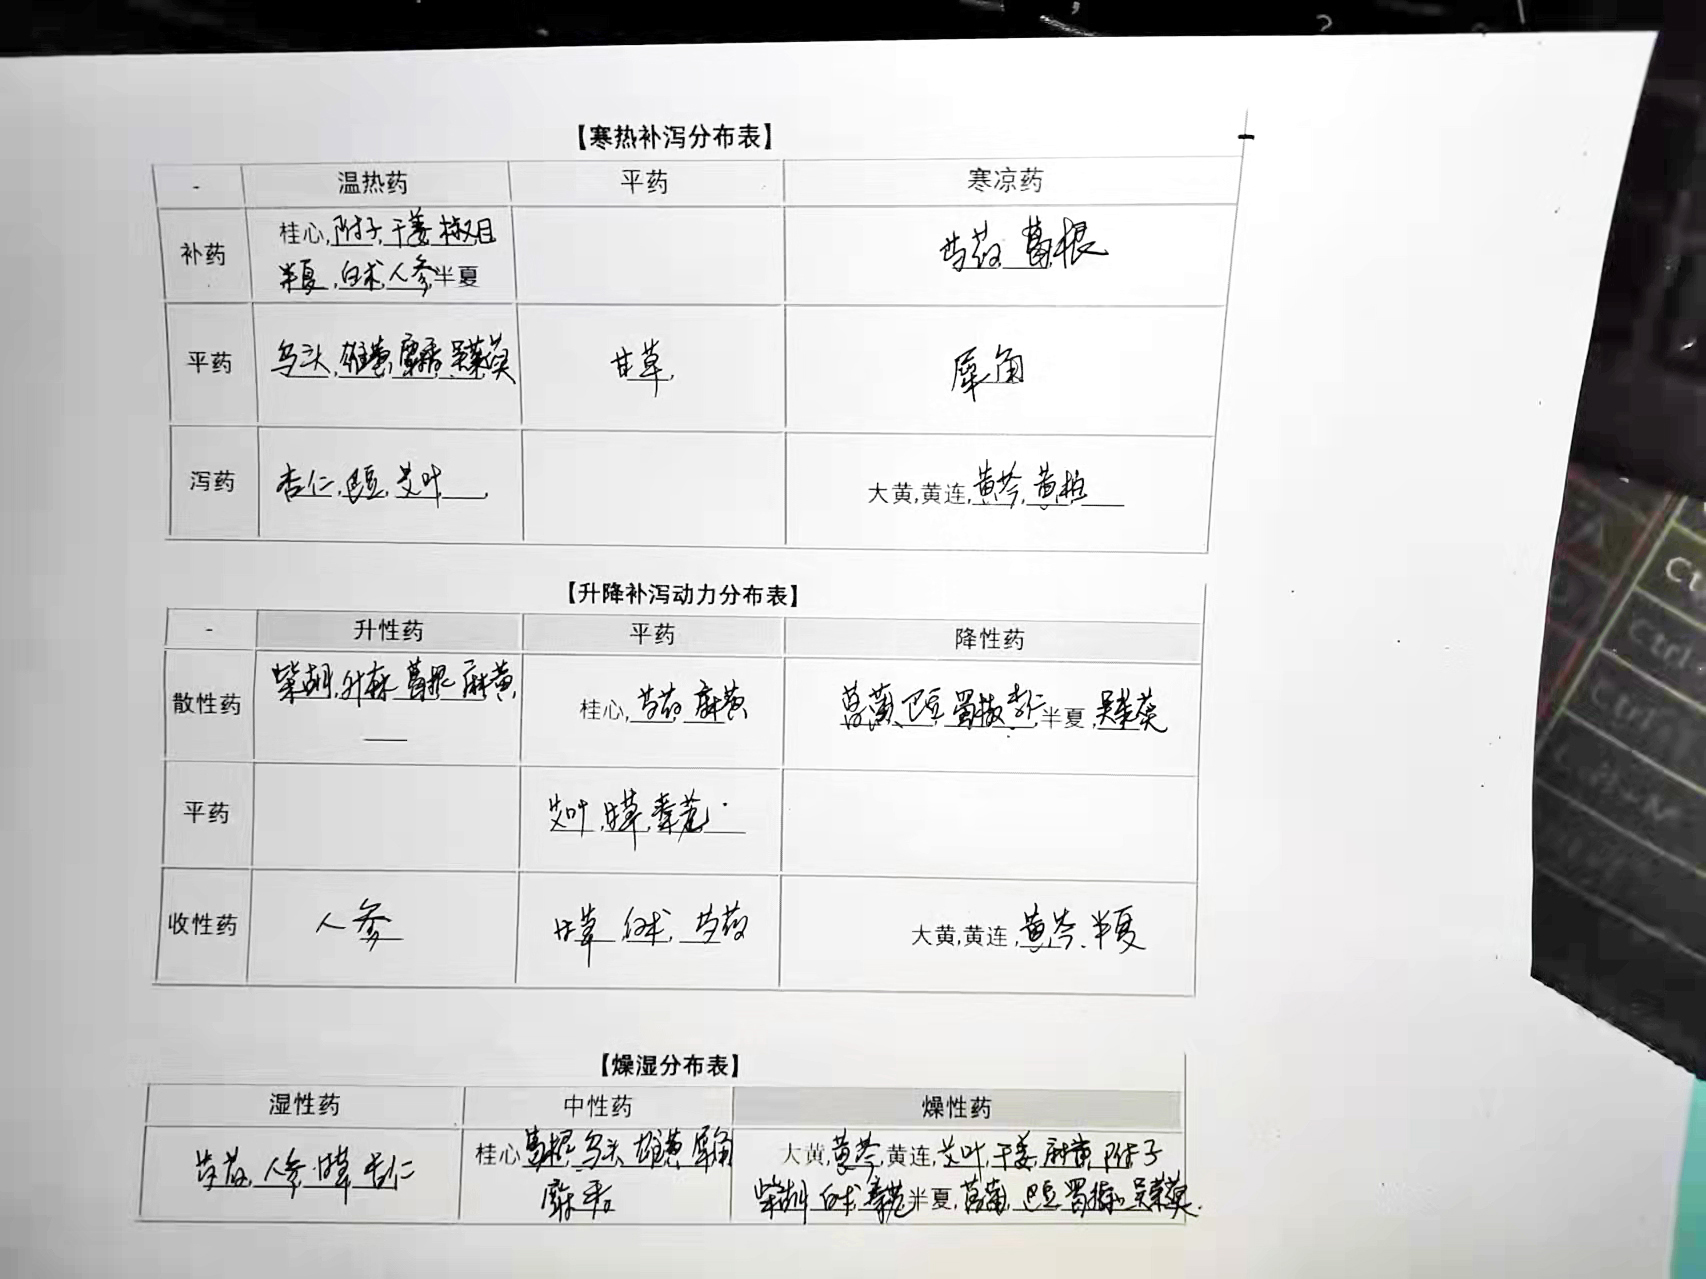 【寒热补泻分布表】
- 温热药 平药 寒凉药
补药 桂心,附子,干姜 椒目 芍药 葛根
半夏,白术,人参,半夏
平药 乌头,雄黄,麝香,吴茱萸 甘草, 犀角
泻药 杏仁,巴豆,艾叶 , 大黄,黄连,黄芩,黄柏
【升降补泻动力分布表】
- 升性药 平药 降性药
散性药 柴胡,升麻 葛根 麻黄, 桂心,芍药 麻黄 菖蒲,巴豆 蜀椒 杏仁,半夏,吴茱萸
平药 艾叶,甘草,秦艽
收性药 人参 甘草 白术, 芍药 大黄,黄连,黄芩、半夏
【燥湿分布表】
湿性药 中性药 燥性药
芍药,人参,甘草,杏仁 桂心 葛根 乌头 雄黄 犀角 大黄,黄芩,黄连,艾叶,干姜,麻黄 附子
麝香 柴胡 白术 秦艽 半夏, 巴豆 蜀椒 吴茱萸